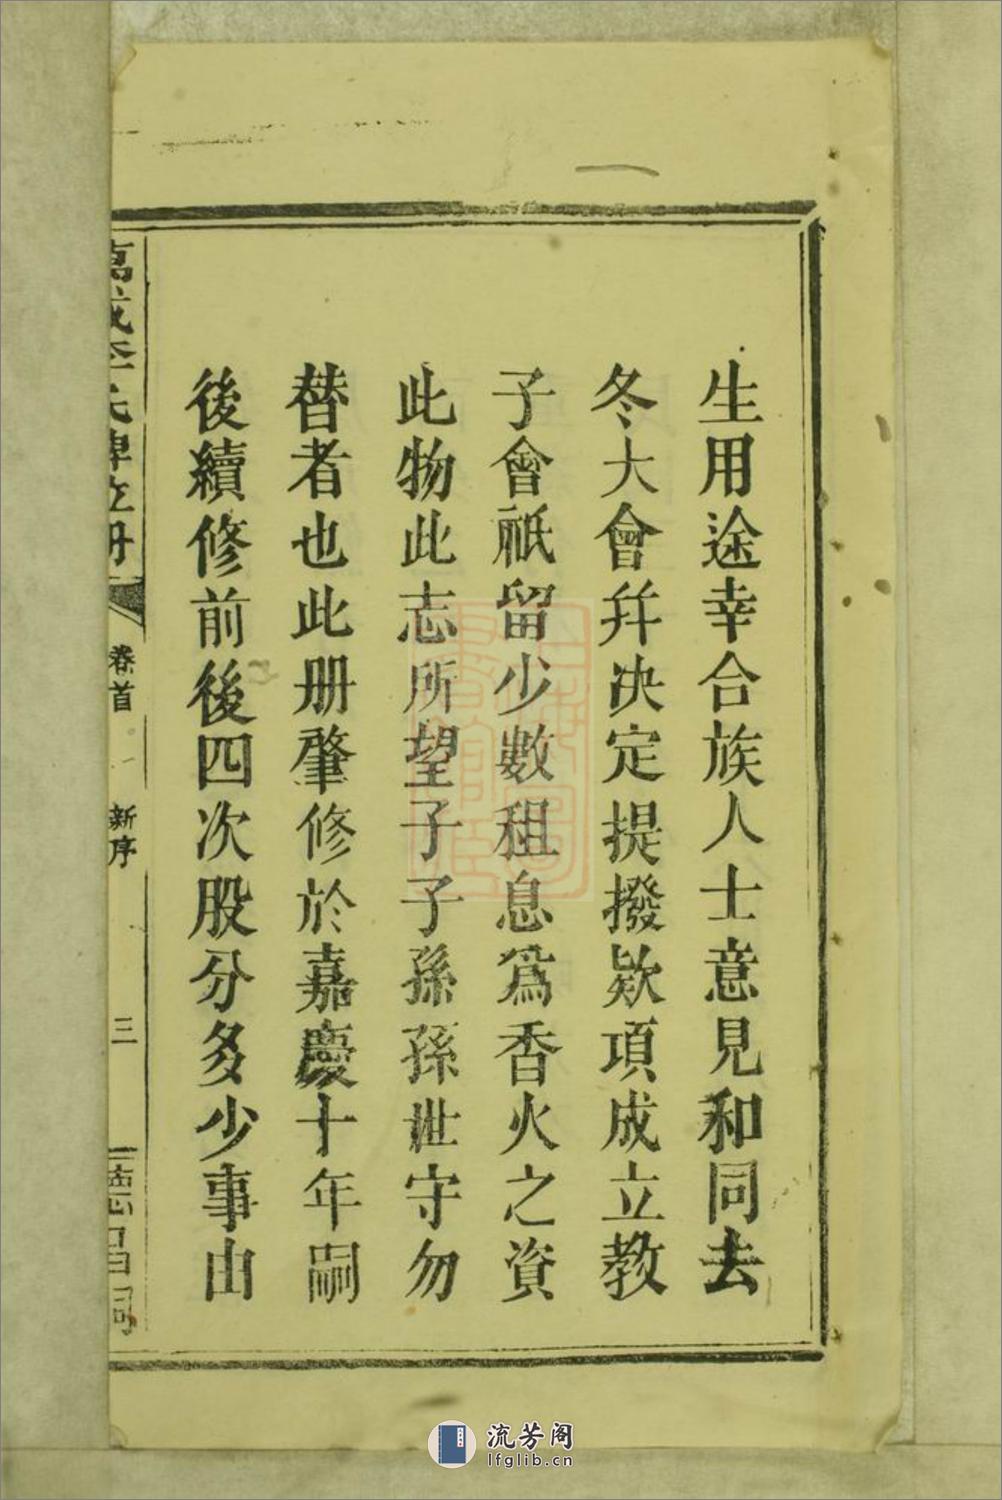 生用途幸合族人士意見和同去
冬大會幷决定提撥欵項成立教
子會祇留少數租息爲香火之資
此物此志所望子子孫孫世守勿
替者也此册肇修於嘉慶十年嗣
後續修前後四次股分多少事由
萬成李氏碑立册
卷首
新序
三
德昌祠
流芳阁
lfglib.cn